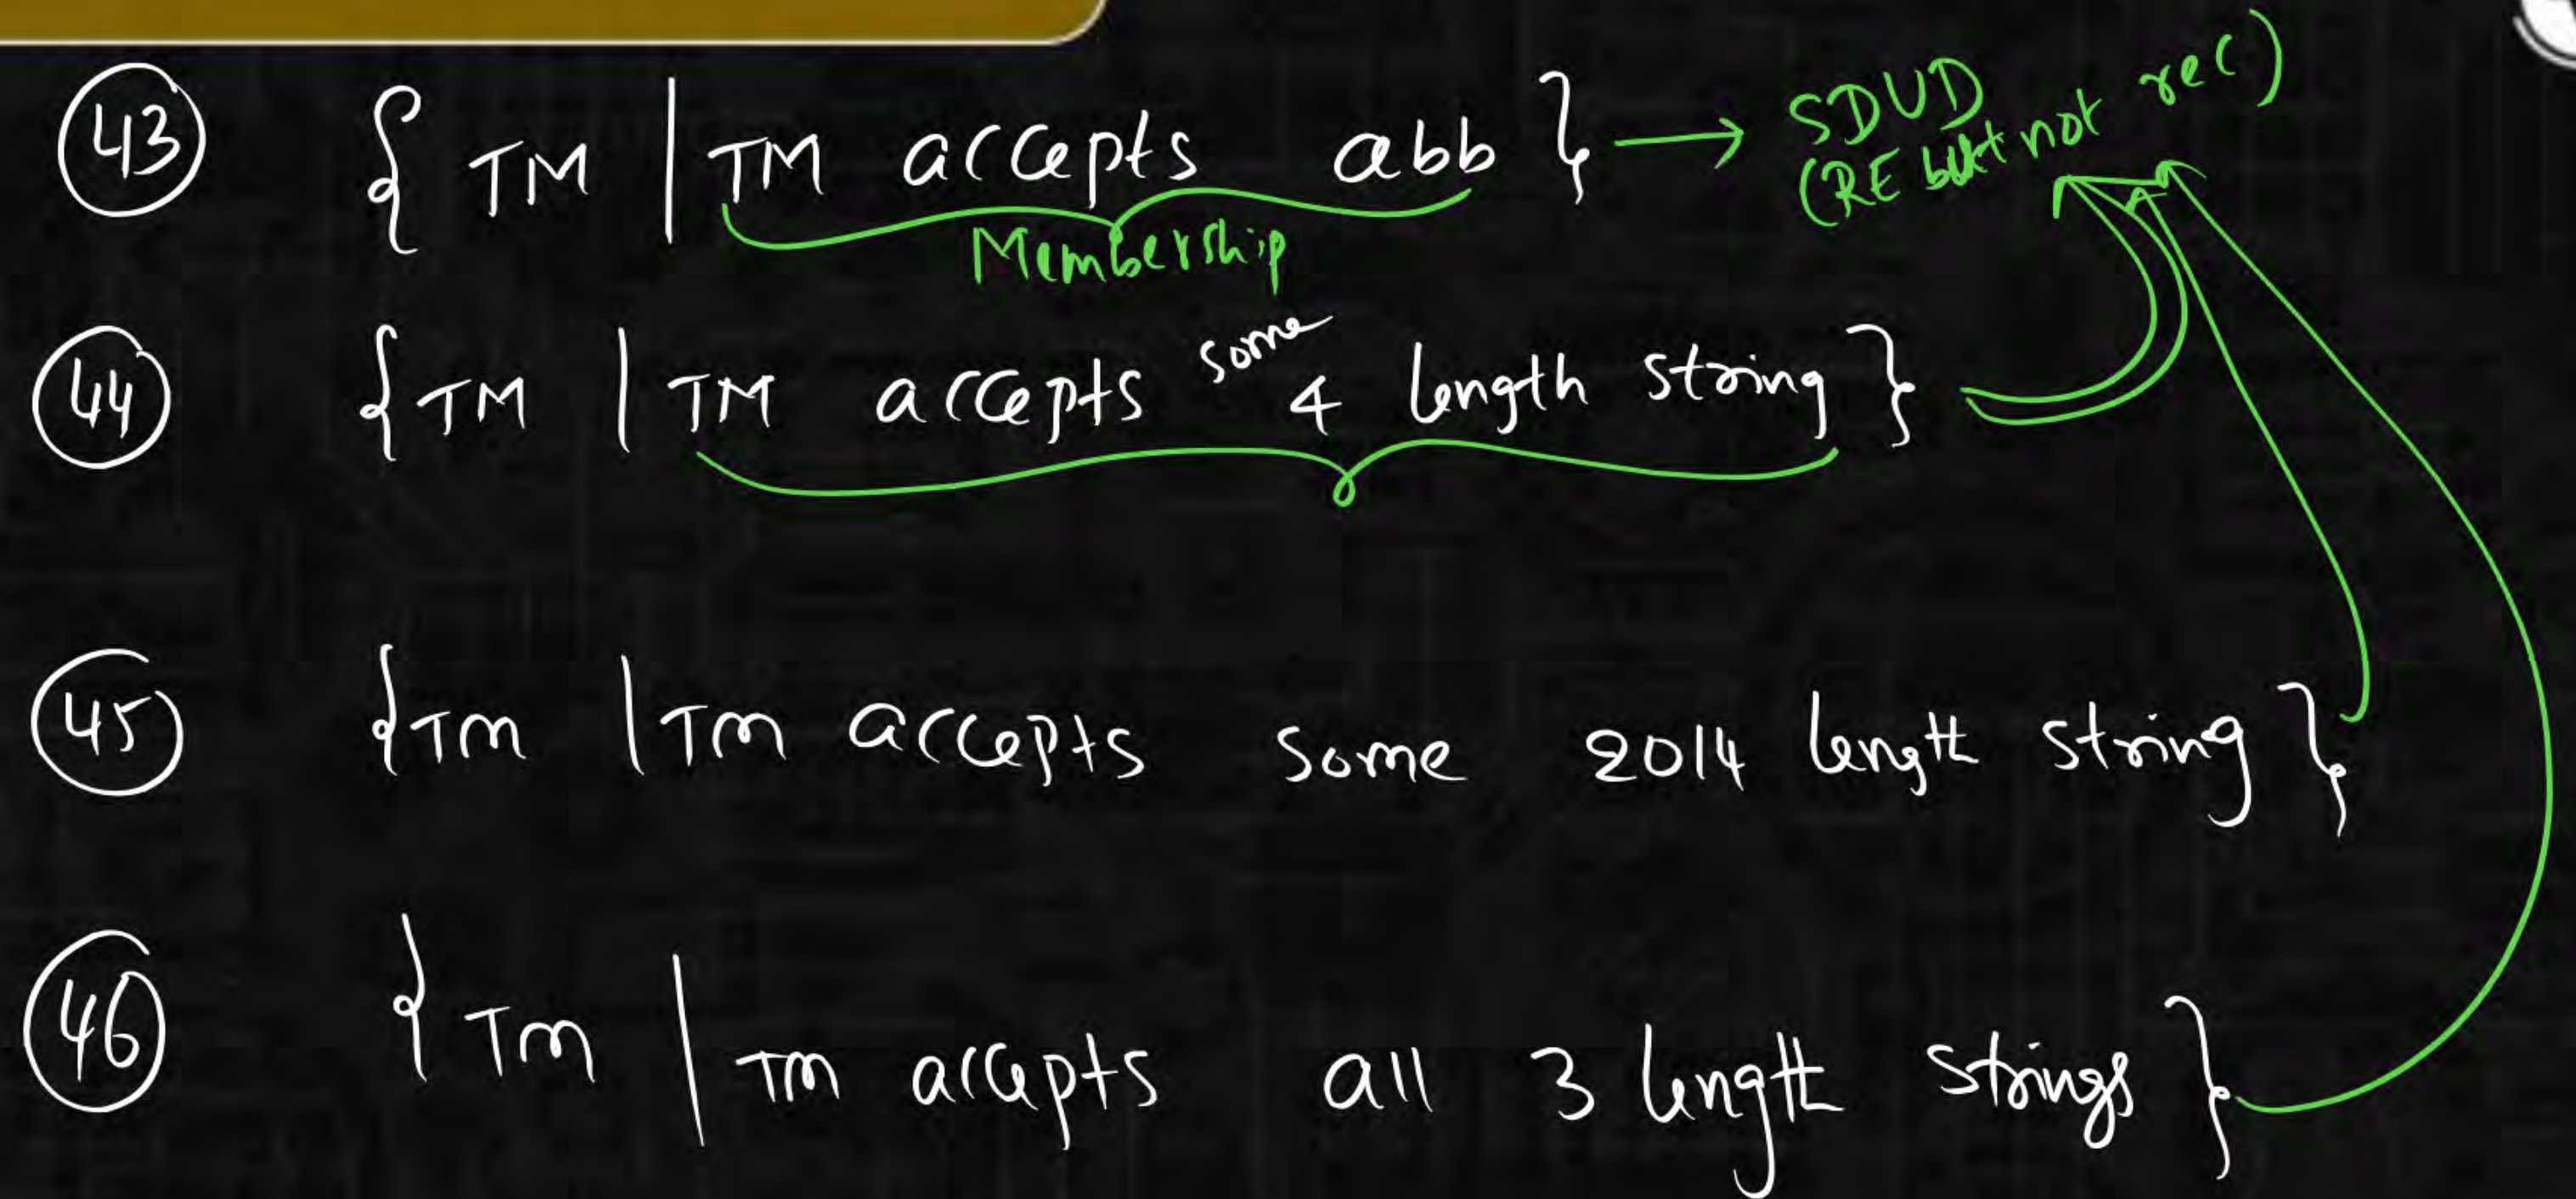 43 { TM | TM accepts abb } → SDUD
(RE but not rec)
Membership
44 { TM | TM accepts some 4 length string }
45 { Tm | Tm accepts some 2014 length string }
46 { Tm | Tm accepts all 3 length strings }